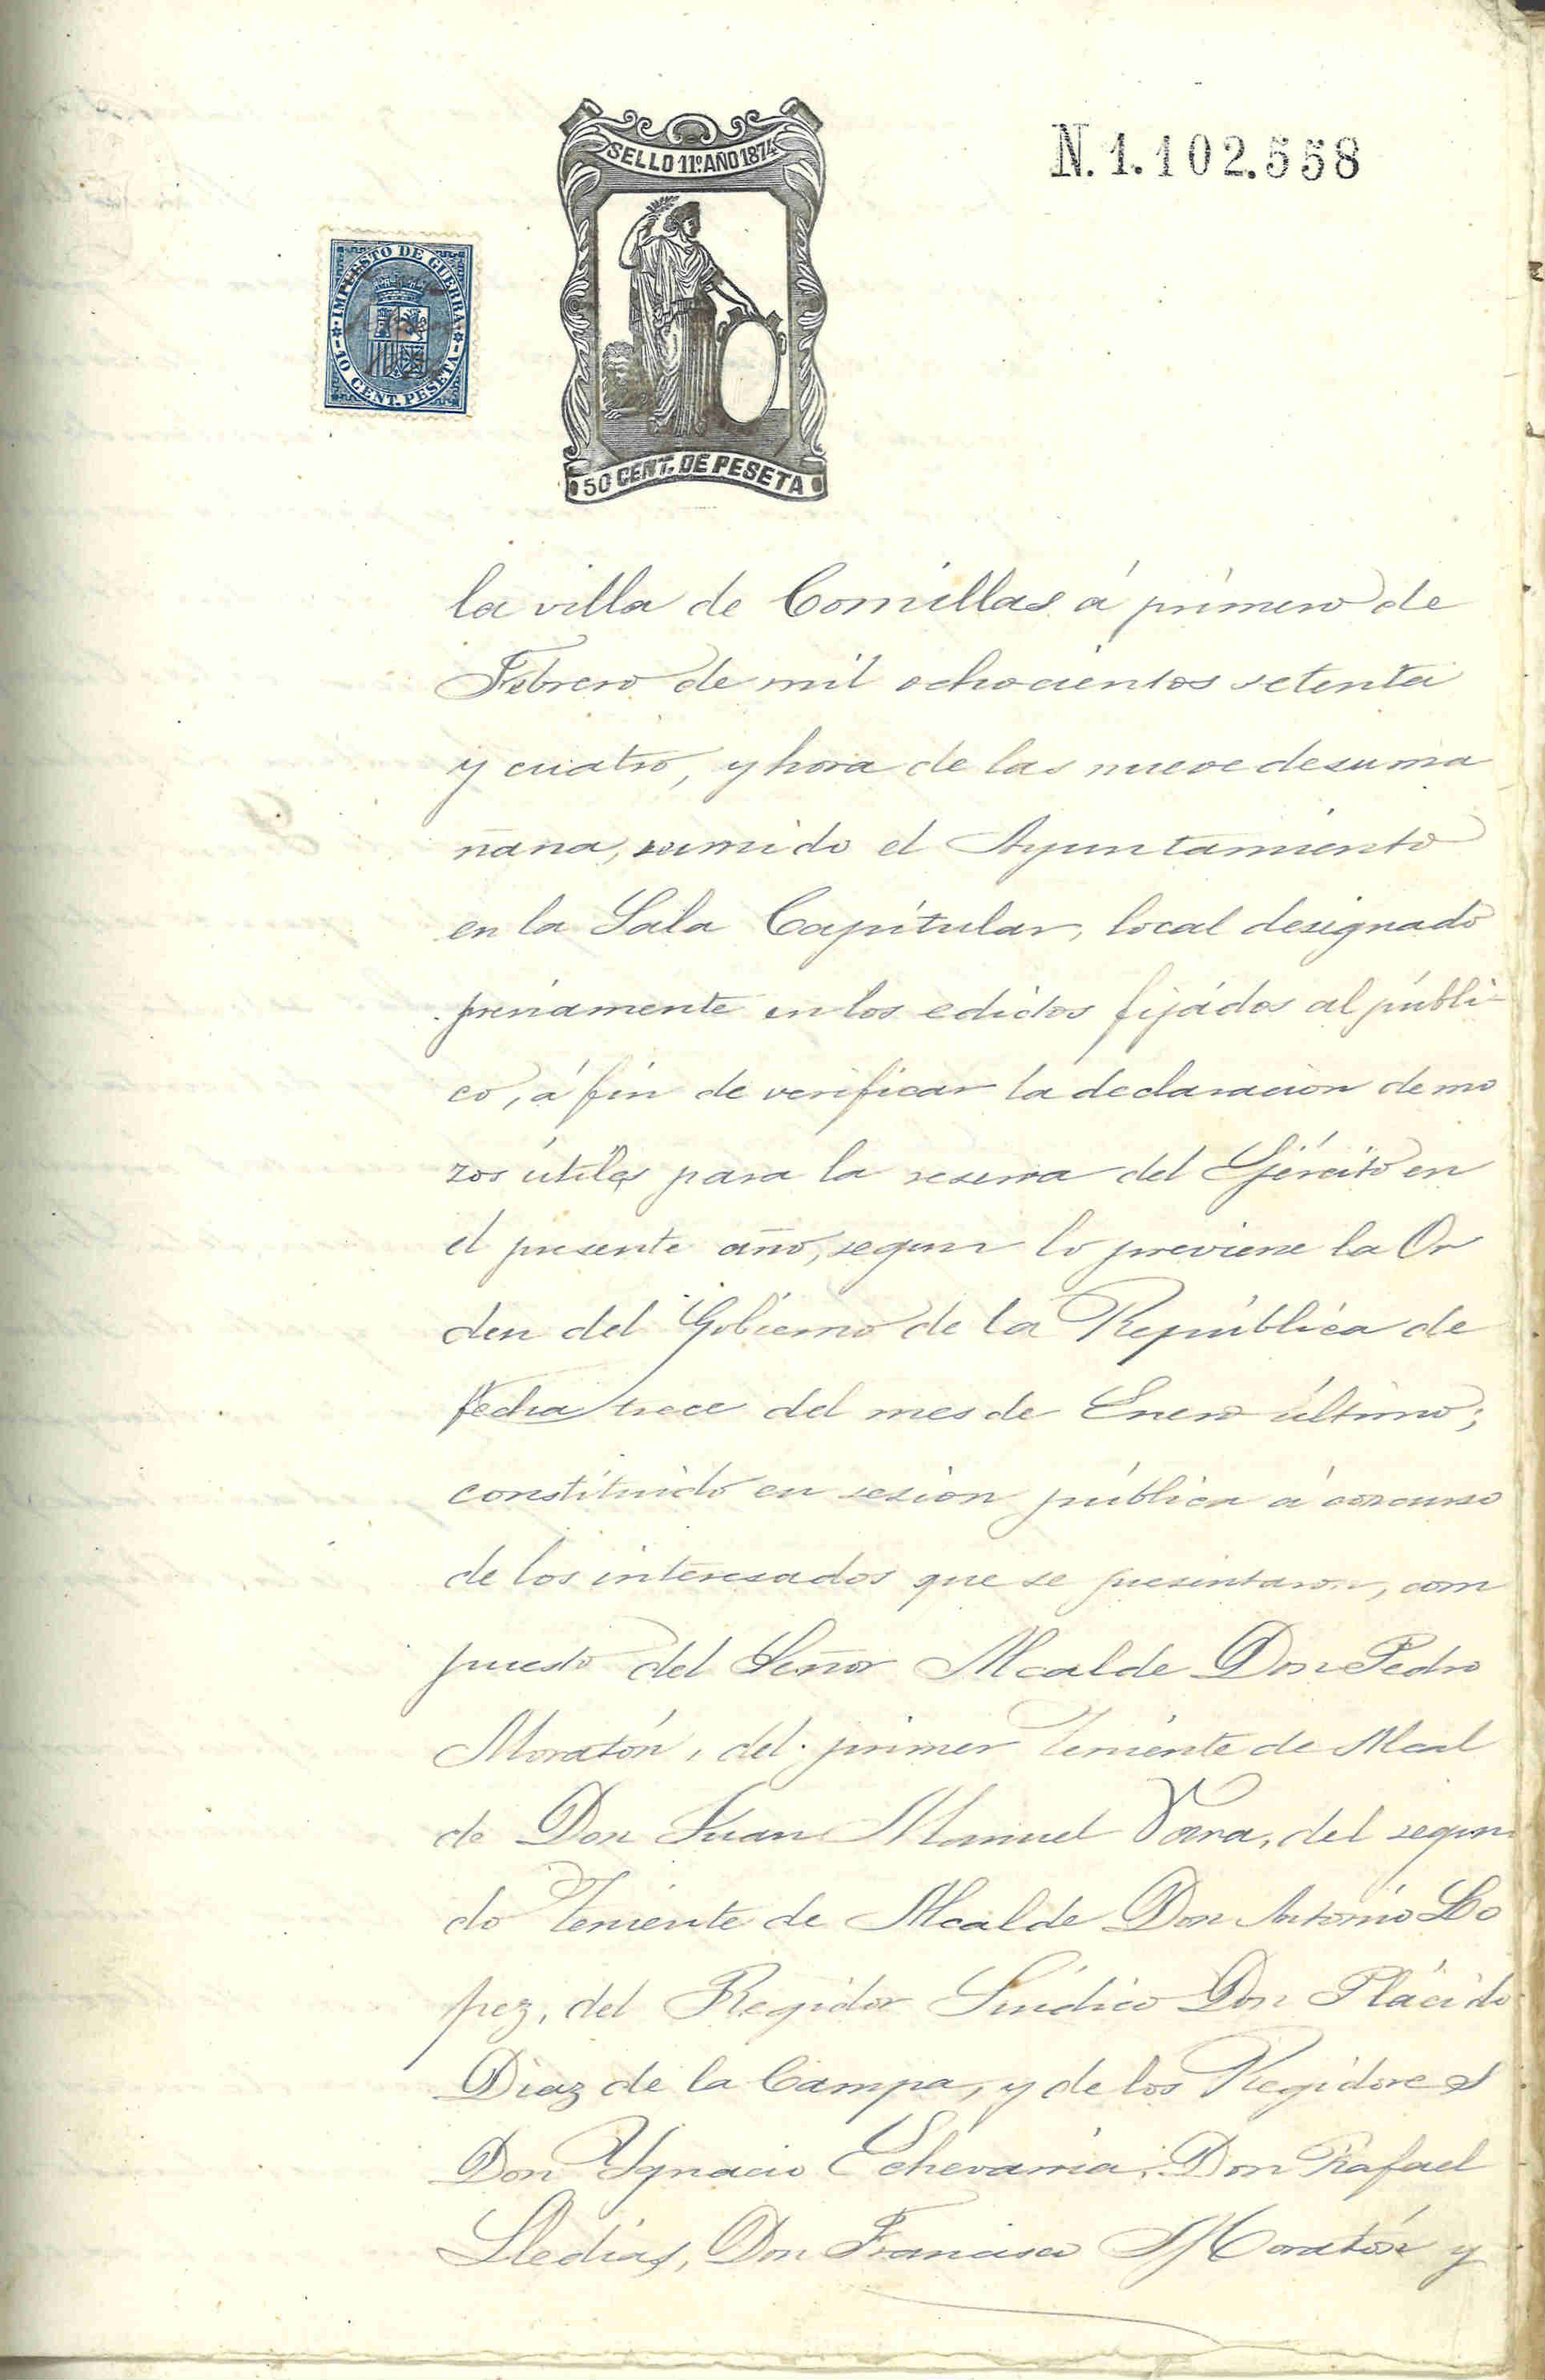 N. 1.102.558
SELLO 11º AÑO 1874
IMPUESTO DE GUERRA
10 CENT. PESETA
50 CENT. DE PESETA
la villa de Comillas á primero de
Febrero de mil ochocientos setenta
y cuatro, y hora de las nueve de su ma
ñana, reunido el Ayuntamiento
en la Sala Capitular, local designado
préviamente en los edictos fijados al públi-
co, á fin de verificar la declaracion de mo
zos útiles para la reserva del Ejército en
el presente año, segun lo previene la Or
den del Gobierno de la República de
fecha trece del mes de Enero último;
constituido en sesion pública á
de los interesados que se presentaron, com
puesto del Señor Alcalde Don Pedro
Moratón, del primer Teniente de Alcal
de Don Juan Manuel del segun
do Teniente de Alcalde Don Antonio Lo
pez, del Regidor Síndico Don Plácido
Diaz de la Campa, y de los Regidores
Don Ygnacio Echevarria, Don Rafael
Lledias, Don Francisco Moratón y